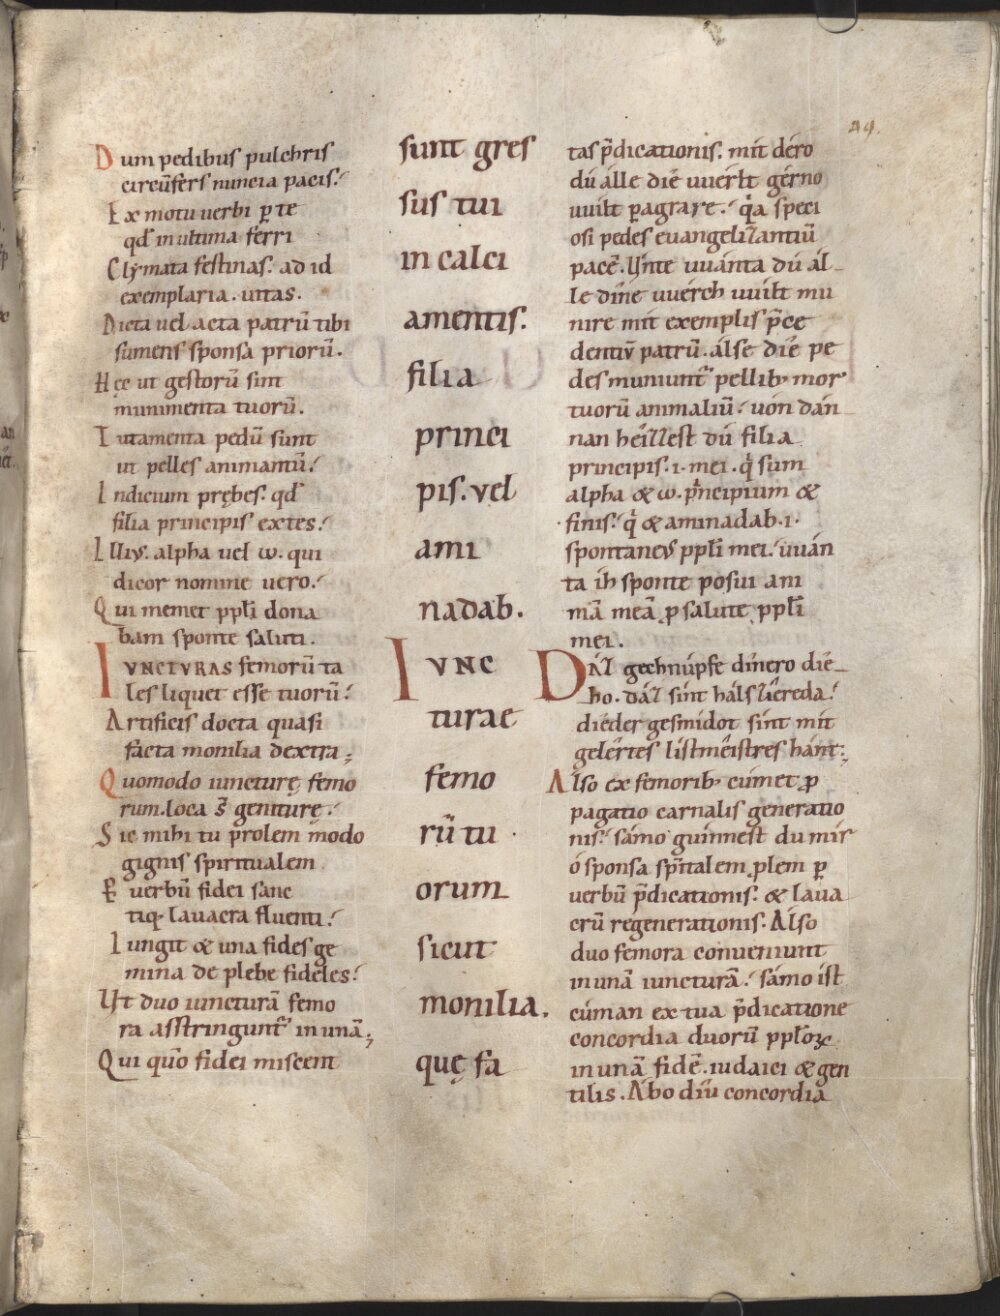 29.
Dum pedibus pulchris
circūfers nuncia pacis.
Ex motu uerbi p̲ te
qđ in ultima ferri
Clẏmata festinas. ad id
exemplaria. uitas.
Dicta uel acta patrū tibi
sumens sponsa priorū.
Hęc ut gestorū sint
munimenta tuorū.
Tutamenta pedū sunt
ut pelles animantū.
Indicium prębes. qđ
filia principis extes.
Illiꝰ. alpha uel ω. qui
dicor nomine uero.
Qui memet pp̄li dona
bam sponte saluti.
IVNCTVRAS femorū ta
les liquet esse tuorū.
Artificis docta quasi
facta monilia dextra;
Quomodo iuncturę femo
rum. loca s̄ geniturę.
Sic mihi tu prolem modo
gignis spiritualem.
Et uerbū fidei sanc
tiq; lauacra fluenti.
Iungit & una fides ge
mina de plebe fideles.
Ut duo iuncturā femo
ra asstringunt᷑ in unā;
Qui quo fidei miscent
sunt gres
sus tui
in calci
amentis.
filia
princi
pis. vel
ami
nadab.
IVNC
turae
femo
rū tu
orum
sicut
monilia.
quę fa
tas p̄dicationis. mit déro
dú álle die vuérlt gérno
uuilt p̲agrare. q̇a speci
osi pedes euangelizantiū
pacē. Unte vuánta dú ál
le dîne vuérch vuilt mu
nire mit exemplis p̄ce
dentiū patrū. álse díe pe
des muniunt᷑ pellibꝫ mor
tuorū animaliū. uón dán
nan héizzest dú filia
principis. i. mei. q̇ sum
alpha & ω. p̍ncipium &
finis. q̇ & aminadab. i.
spontaneꝰ pp̄li mei. uuán
ta ih sponte posui ani
mā meā ꝓ salute pp̄li
mei.
Dáz gechnúpfe dínero díe
ho. dáz sint háls zîereda.
díeder gesmidot sint mit
gelértes listmêistres hánt;
Álso ex femoribꝫ cúmet ꝓ
pagatio carnalis generatio
nis. sámo guúnnest du mír
ó sponsa sp̄italem ꝓlem p̲
verbū p̄dicationis. & laua
crū regenerationis. Álso
duo femora conueniunt
in unā iuncturā. sámo íst
cúman ex tua p̄dicatione
concordia duorū pp̄loꝝ
in unā fidē. iudaici & gen
tilis. Ábo díu concordia